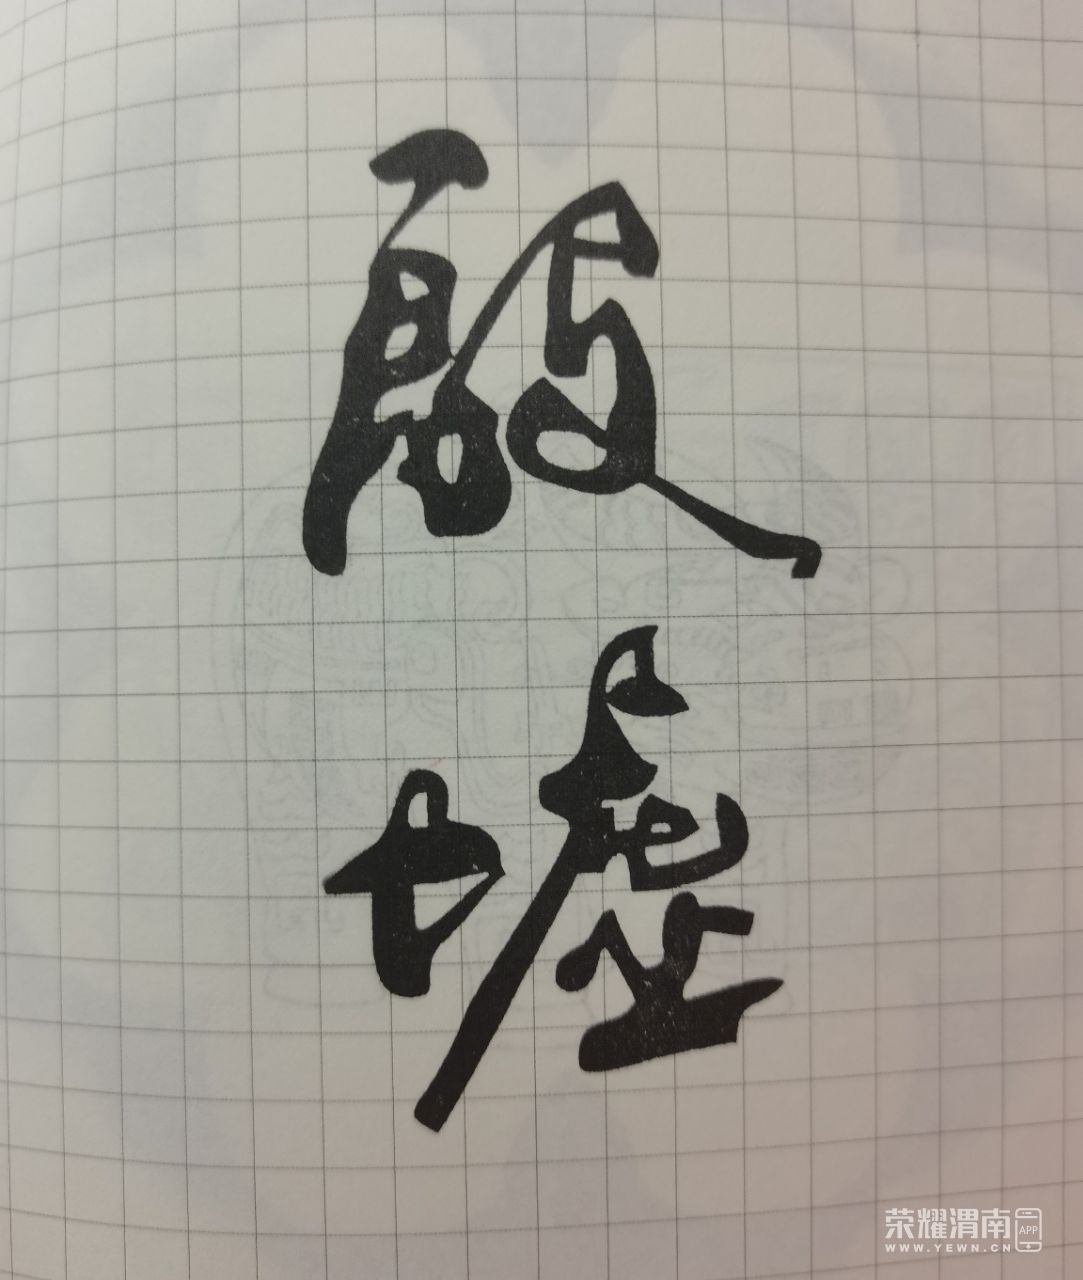 殷墟
荣耀渭南
APP
WWW.YEWN.CN